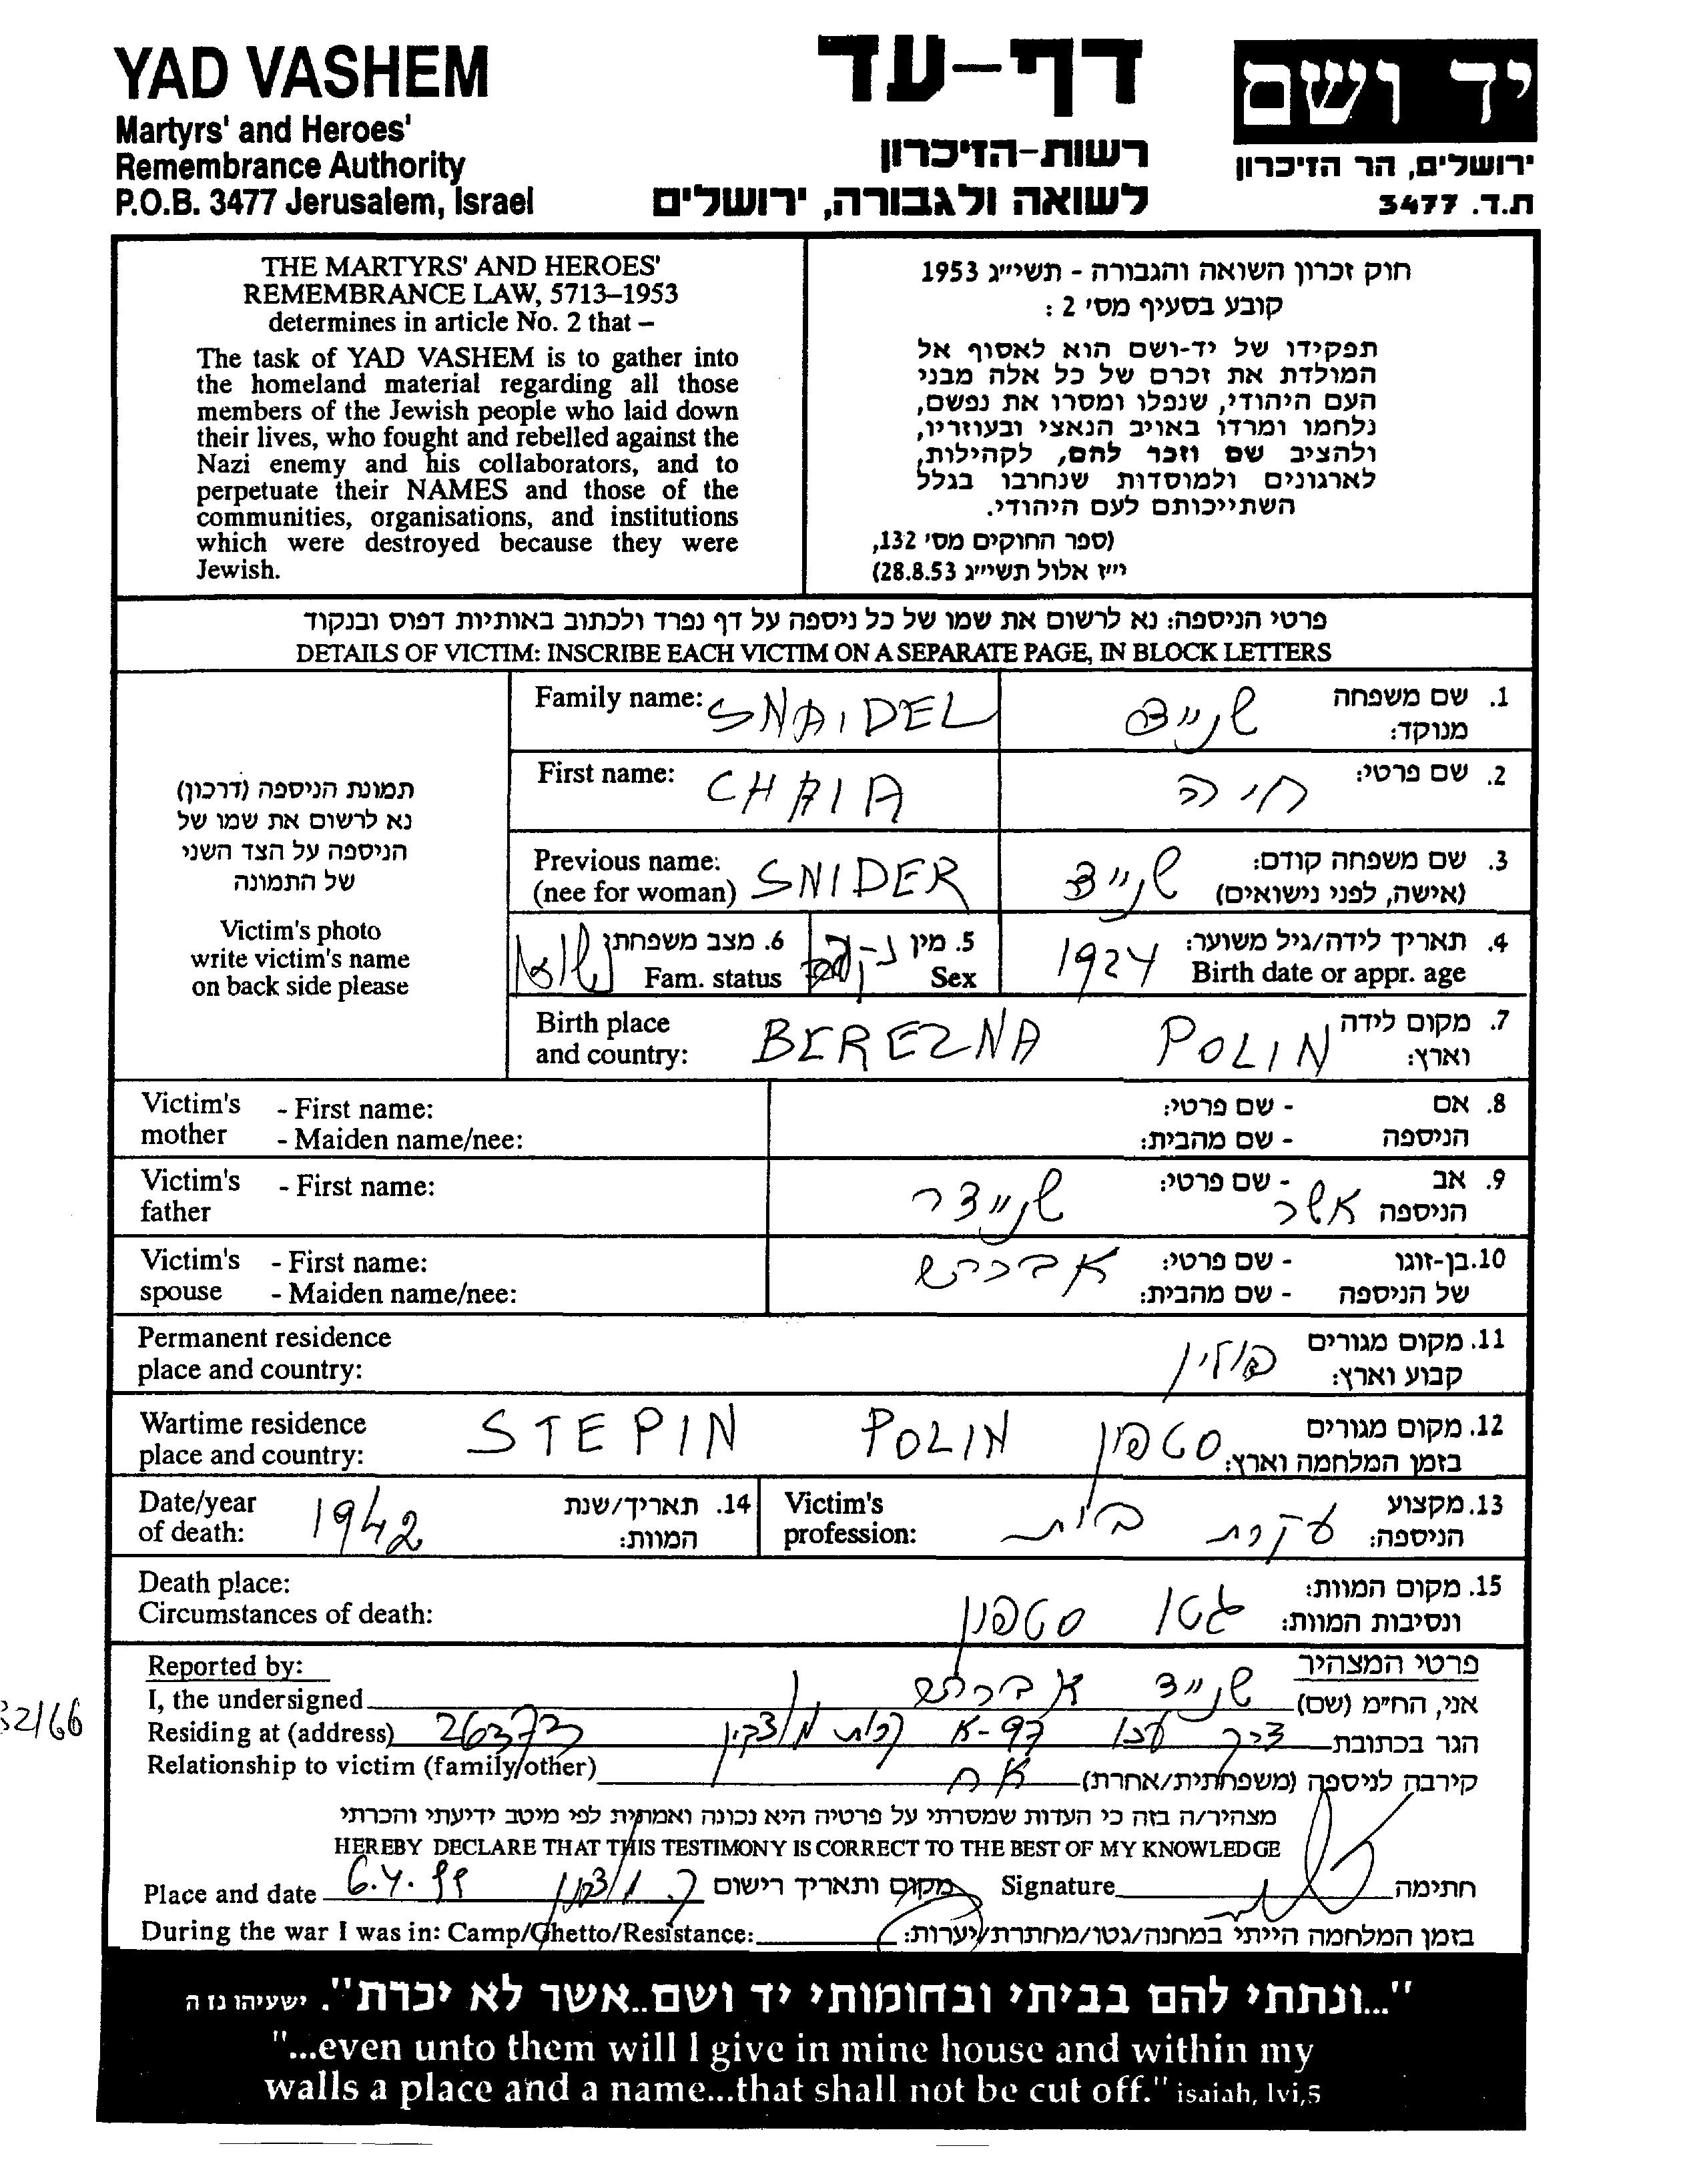 YAD VASHEM
Martyrs' and Heroes'
Remembrance Authority
P.O.B. 3477 Jerusalem, Israel
דף-עד
רשות-הזיכרון
לשואה ולגבורה, ירושלים
יד ושם
ירושלים, הר הזיכרון
ת.ד. 3477
THE MARTYRS' AND HEROES'
REMEMBRANCE LAW, 5713–1953
determines in article No. 2 that –
The task of YAD VASHEM is to gather into
the homeland material regarding all those
members of the Jewish people who laid down
their lives, who fought and rebelled against the
Nazi enemy and his collaborators, and to
perpetuate their NAMES and those of the
communities, organisations, and institutions
which were destroyed because they were
Jewish.
חוק זכרון השואה והגבורה - תשי״ג 1953
קובע בסעיף מס' 2 :
תפקידו של יד-ושם הוא לאסוף אל
המולדת את זכרם של כל אלה מבני
העם היהודי, שנפלו ומסרו את נפשם,
נלחמו ומרדו באויב הנאצי ובעוזריו,
ולהציב שם וזכר להם, לקהילות,
לארגונים ולמוסדות שנחרבו בגלל
השתייכותם לעם היהודי.
(ספר החוקים מס' 132,
י״ז אלול תשי״ג 28.8.53)
פרטי הניספה: נא לרשום את שמו של כל ניספה על דף נפרד ולכתוב באותיות דפוס ובנקוד
DETAILS OF VICTIM: INSCRIBE EACH VICTIM ON A SEPARATE PAGE, IN BLOCK LETTERS
תמונת הניספה (דרכון)
נא לרשום את שמו של
הניספה על הצד השני
של התמונה
Victim's photo
write victim's name
on back side please
Family name: SNAIDEL
1. שם משפחה
מנוקד:
First name: CHAIA חיה
2. שם פרטי:
Previous name:
(nee for woman) SNIDER שנייד
3. שם משפחה קודם:
(אישה, לפני נישואים)
6. מצב משפחתי
Fam. status
5. מין נקבה
Sex
4. תאריך לידה/גיל משוער:
Birth date or appr. age 1924
Birth place
and country: BEREZNA POLIN
7. מקום לידה
וארץ:
Victim's mother - First name:
- Maiden name/nee:
8. אם הניספה - שם פרטי:
- שם מהבית:
Victim's father - First name:
9. אב הניספה - שם פרטי: אשר שניידר
Victim's spouse - First name:
- Maiden name/nee:
10. בן-זוגו של הניספה - שם פרטי:
- שם מהבית:
Permanent residence
place and country:
11. מקום מגורים
קבוע וארץ: פולין
Wartime residence
place and country: STEPIN POLIN סטפון
12. מקום מגורים
בזמן המלחמה וארץ:
Date/year
of death: 1942
14. תאריך/שנת
המוות:
Victim's
profession: עקרת בית
13. מקצוע
הניספה:
Death place:
Circumstances of death:
15. מקום המוות:
ונסיבות המוות: גטו סטפון
Reported by:
פרטי המצהיר
I, the undersigned
אני, הח״מ (שם) שנייד
32/66
Residing at (address) 26373
הגר בכתובת דרך עכו 97-א קרית מוצקין
Relationship to victim (family/other)
קירבה לניספה (משפחתית/אחרת) אח
מצהיר/ה בזה כי העדות שמסרתי על פרטיה היא נכונה ואמתית לפי מיטב ידיעתי והכרתי
HEREBY DECLARE THAT THIS TESTIMONY IS CORRECT TO THE BEST OF MY KNOWLEDGE
Place and date 6.4.99 ק. מוצקין מקום ותאריך רישום
Signature חתימה
During the war I was in: Camp/Ghetto/Resistance:
בזמן המלחמה הייתי במחנה/גטו/מחתרת/יערות:
"...ונתתי להם בביתי ובחומותי יד ושם..אשר לא יכרת". ישעיהו נו ה
"...even unto them will I give in mine house and within my
walls a place and a name...that shall not be cut off." isaiah, lvi,5